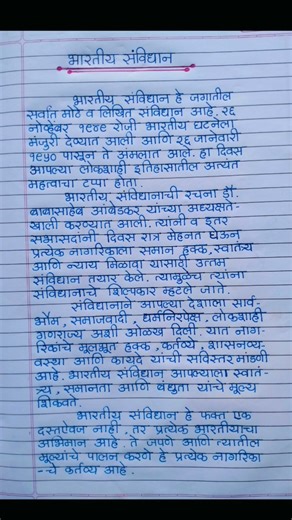 भारतीय संविधान
भारतीय संविधान हे जगातील
सर्वात मोठे व लिखित संविधान आहे. २६
नोव्हेंबर १९४९ रोजी भारतीय घटनेला
मंजुरी देण्यात आली आणि २६ जानेवारी
१९५० पासून ते अमलात आले. हा दिवस
आपल्या लोकशाही इतिहासातील अत्यंत
महत्वाचा टप्पा होता.
भारतीय संविधानाची रचना डॉ.
बाबासाहेब आंबेडकर यांच्या अध्यक्षते-
खाली करण्यात आली. त्यांनी व इतर
सभासदांनी दिवस रात्र मेहनत घेऊन
प्रत्येक नागरिकाला समान हक्क, स्वातंत्र्य
आणि न्याय मिळावा यासाठी उत्तम
संविधान तयार केले. त्यामुळेच त्यांना
संविधानाचे शिल्पकार म्हटले जाते.
संविधानाने आपल्या देशाला सार्व-
भौम, समाजवादी, धर्मनिरपेक्ष, लोकशाही
गणराज्य अशी ओळख दिली. यात नाग-
रिकांचे मूलभूत हक्क, कर्तव्ये, शासनव्य-
वस्था आणि कायदे यांची सविस्तर मांडणी
आहे. भारतीय संविधान आपल्याला स्वातं-
त्र्य, समानता आणि बंधुता यांचे मूल्य
शिकवते.
भारतीय संविधान हे फक्त एक
दस्तऐवज नाही, तर प्रत्येक भारतीयाचा
अभिमान आहे. ते जपणे आणि त्यातील
मूल्यांचे पालन करणे हे प्रत्येक नागरिका
-चे कर्तव्य आहे.